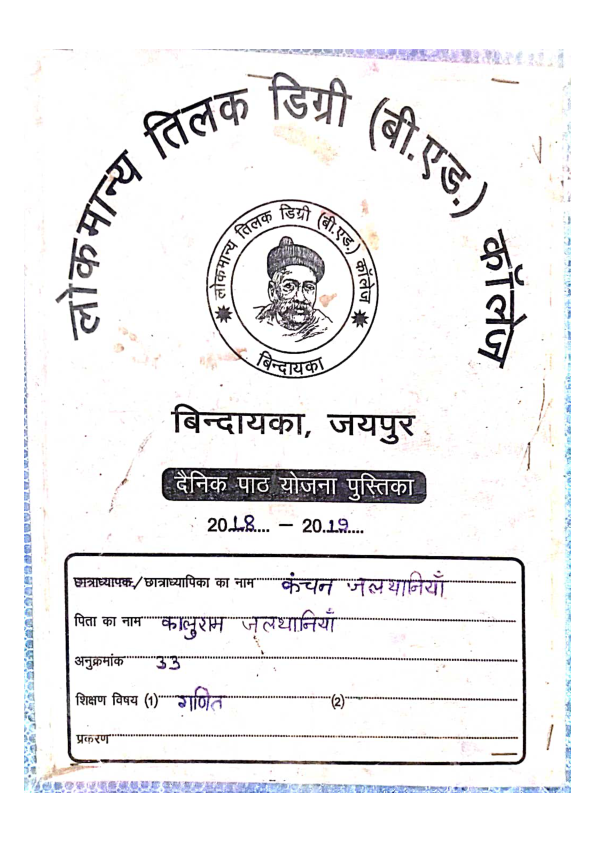 लोकमान्य तिलक डिग्री (बी.एड.) कॉलेज
लोकमान्य तिलक डिग्री (बी.एड.) कॉलेज
बिन्दायका
बिन्दायका, जयपुर
दैनिक पाठ योजना पुस्तिका
2018.... – 2019....
छात्राध्यापक/छात्राध्यापिका का नाम कंचन जलथानियाँ
पिता का नाम कालुराम जलथानियाँ
अनुक्रमांक 33
शिक्षण विषय (1) गणित (2)
प्रकरण